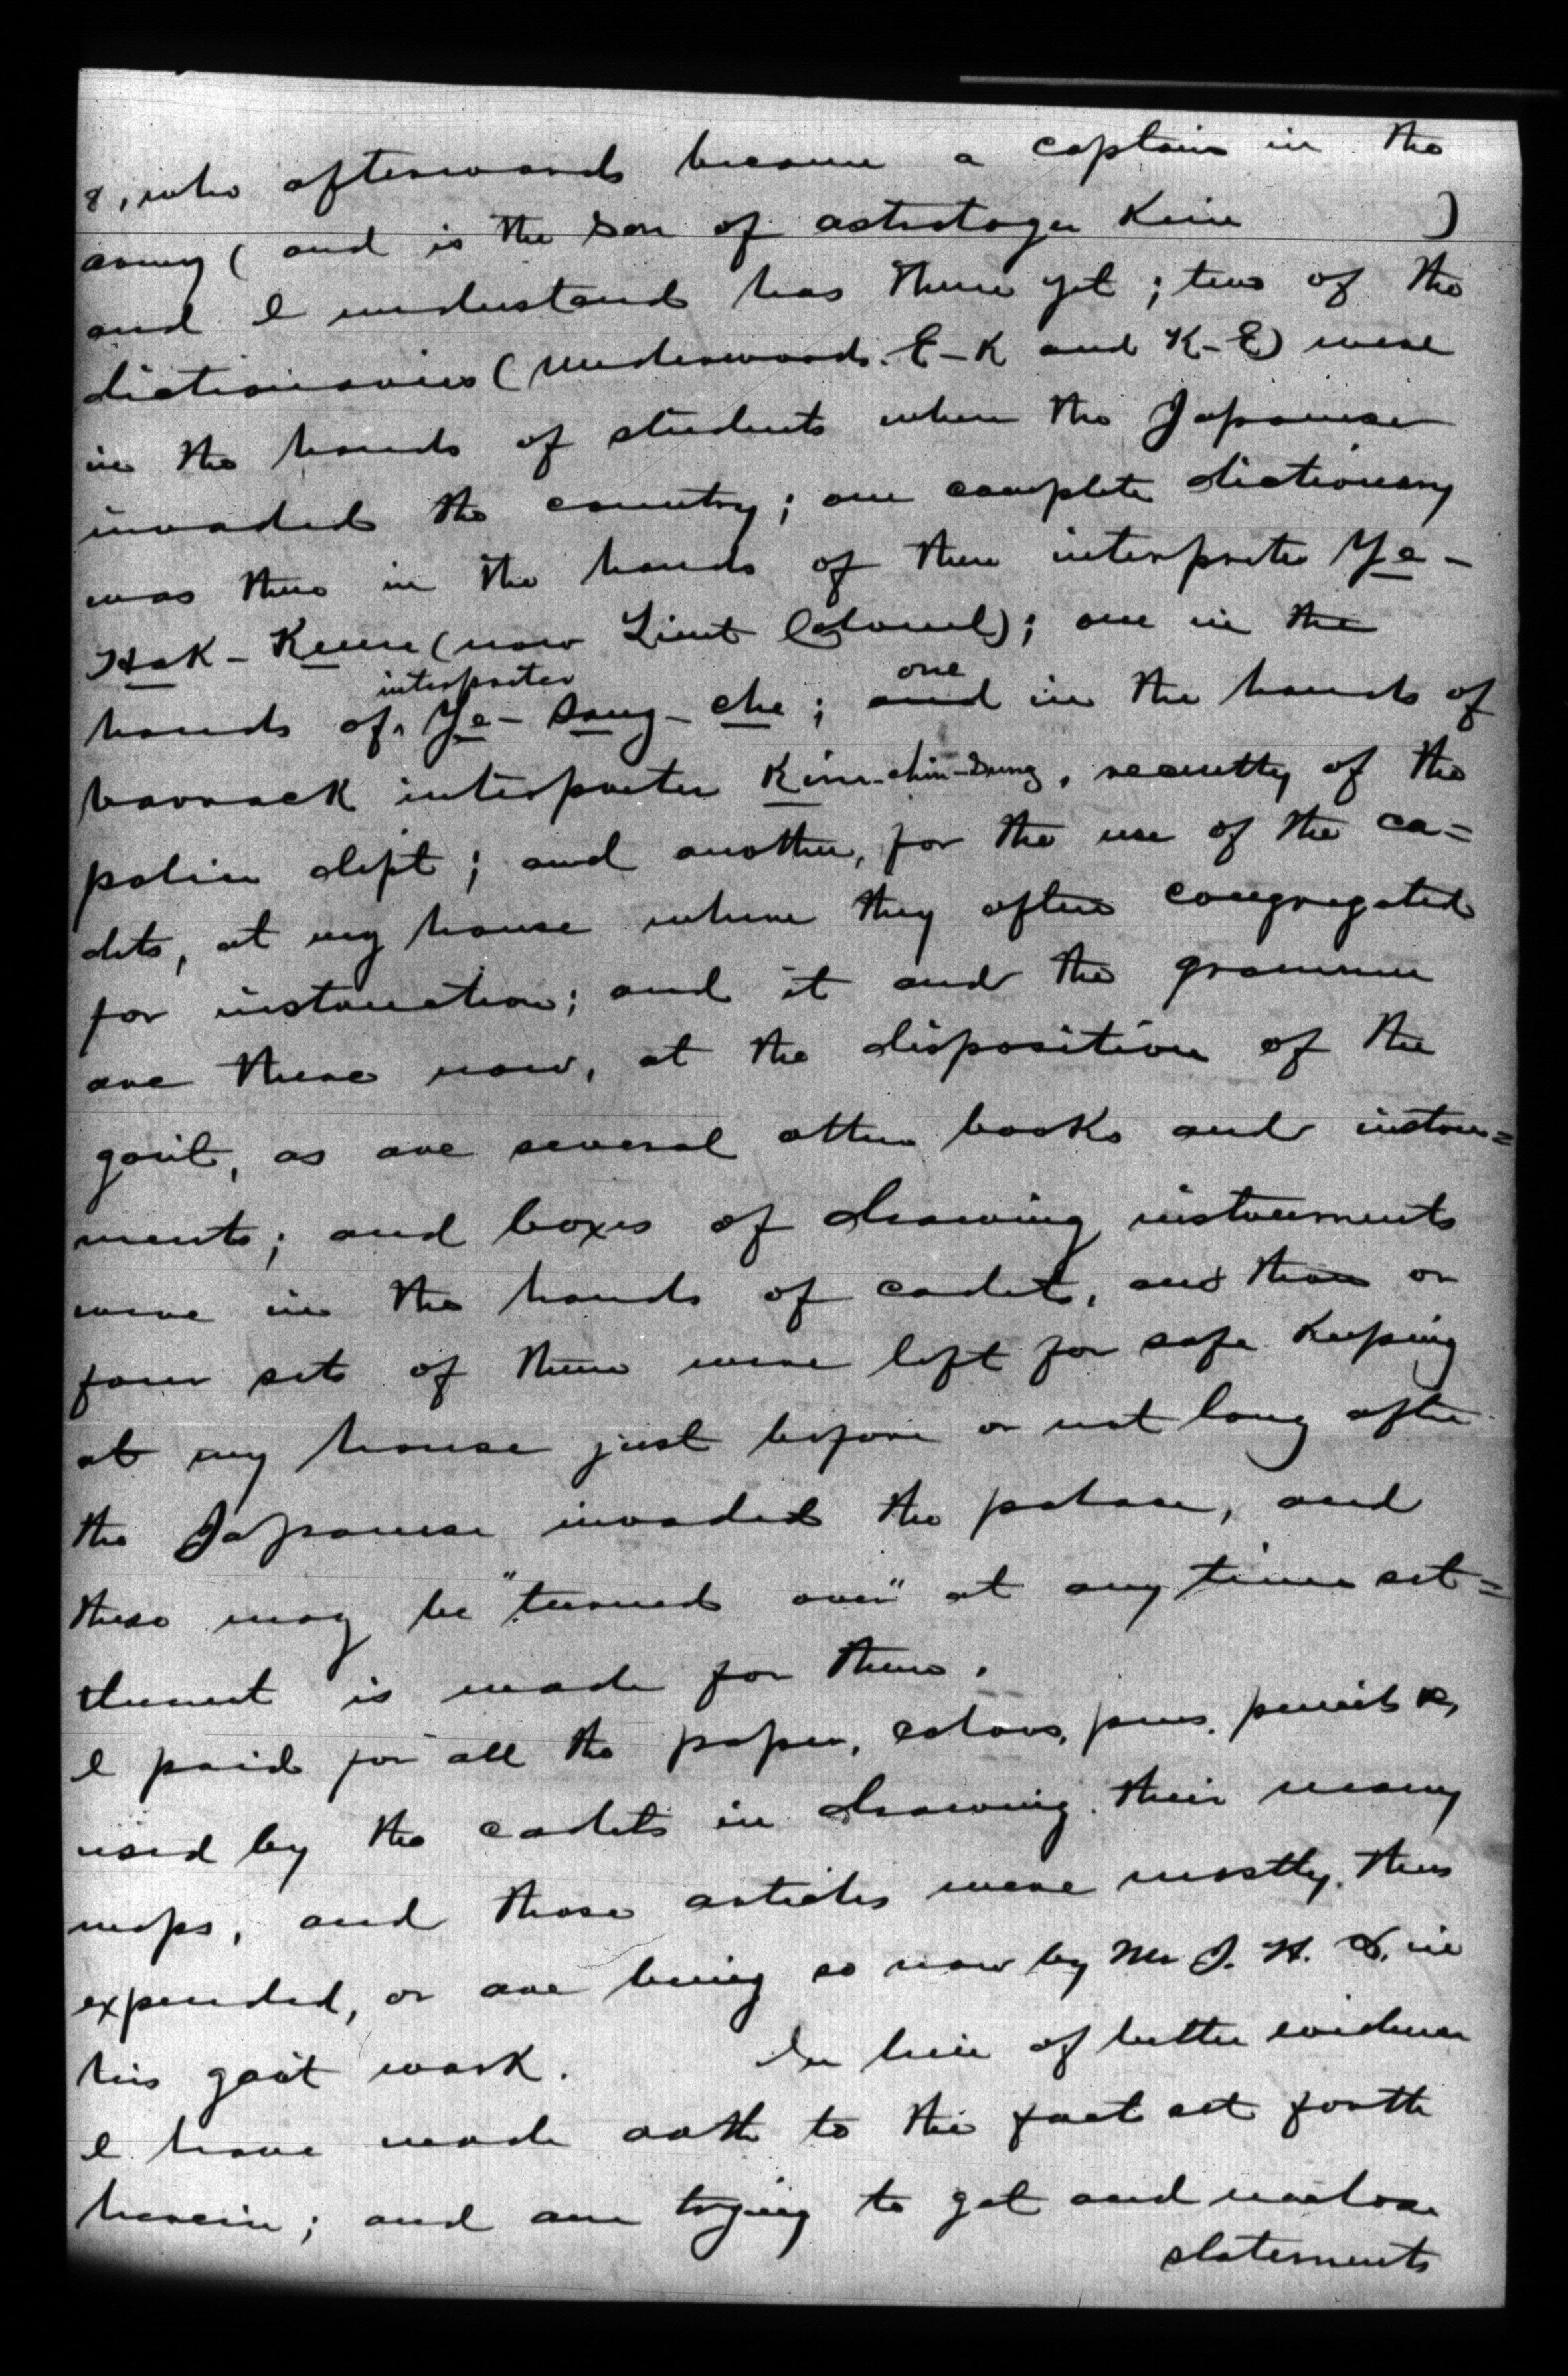 8, who afterwards became a captain in the
army (and is the son of astrologer Kim )
and I understand has them yet; two of the
dictionaries (Underwoods. E-K and K-E) were
in the hands of students when the Japanese
invaded the country; one complete dictionary
was then in the hands of then interpreter Ye-
Hak-Keun (now Lieut Colonel); one in the
hands of interpreter Ye-Sang-che; one in the hands of
barrack interpreter Kim-chin-Sung, recently of the
police dept; and another, for the use of the ca=
dets, at my house where they often congregated
for instruction; and it and the grammar
are there now, at the disposition of the
gov't, as are several other books and instru=
ments; and boxes of drawing instruments
were in the hands of cadets, and three or
four sets of them were left for safe keeping
at my house just before or not long after
the Japanese invaded the palace, and
these may be "turned over" at any time set=
tlement is made for them.
I paid for all the paper, colors, pens, pencils &c,
used by the cadets in drawing their many
maps, and those articles were mostly then
expended, or are being so now by Mr J. H. D. in
his gov't work. In lieu of better evidence
I have made oath to the fact set forth
herein; and am trying to get and enclose
statements